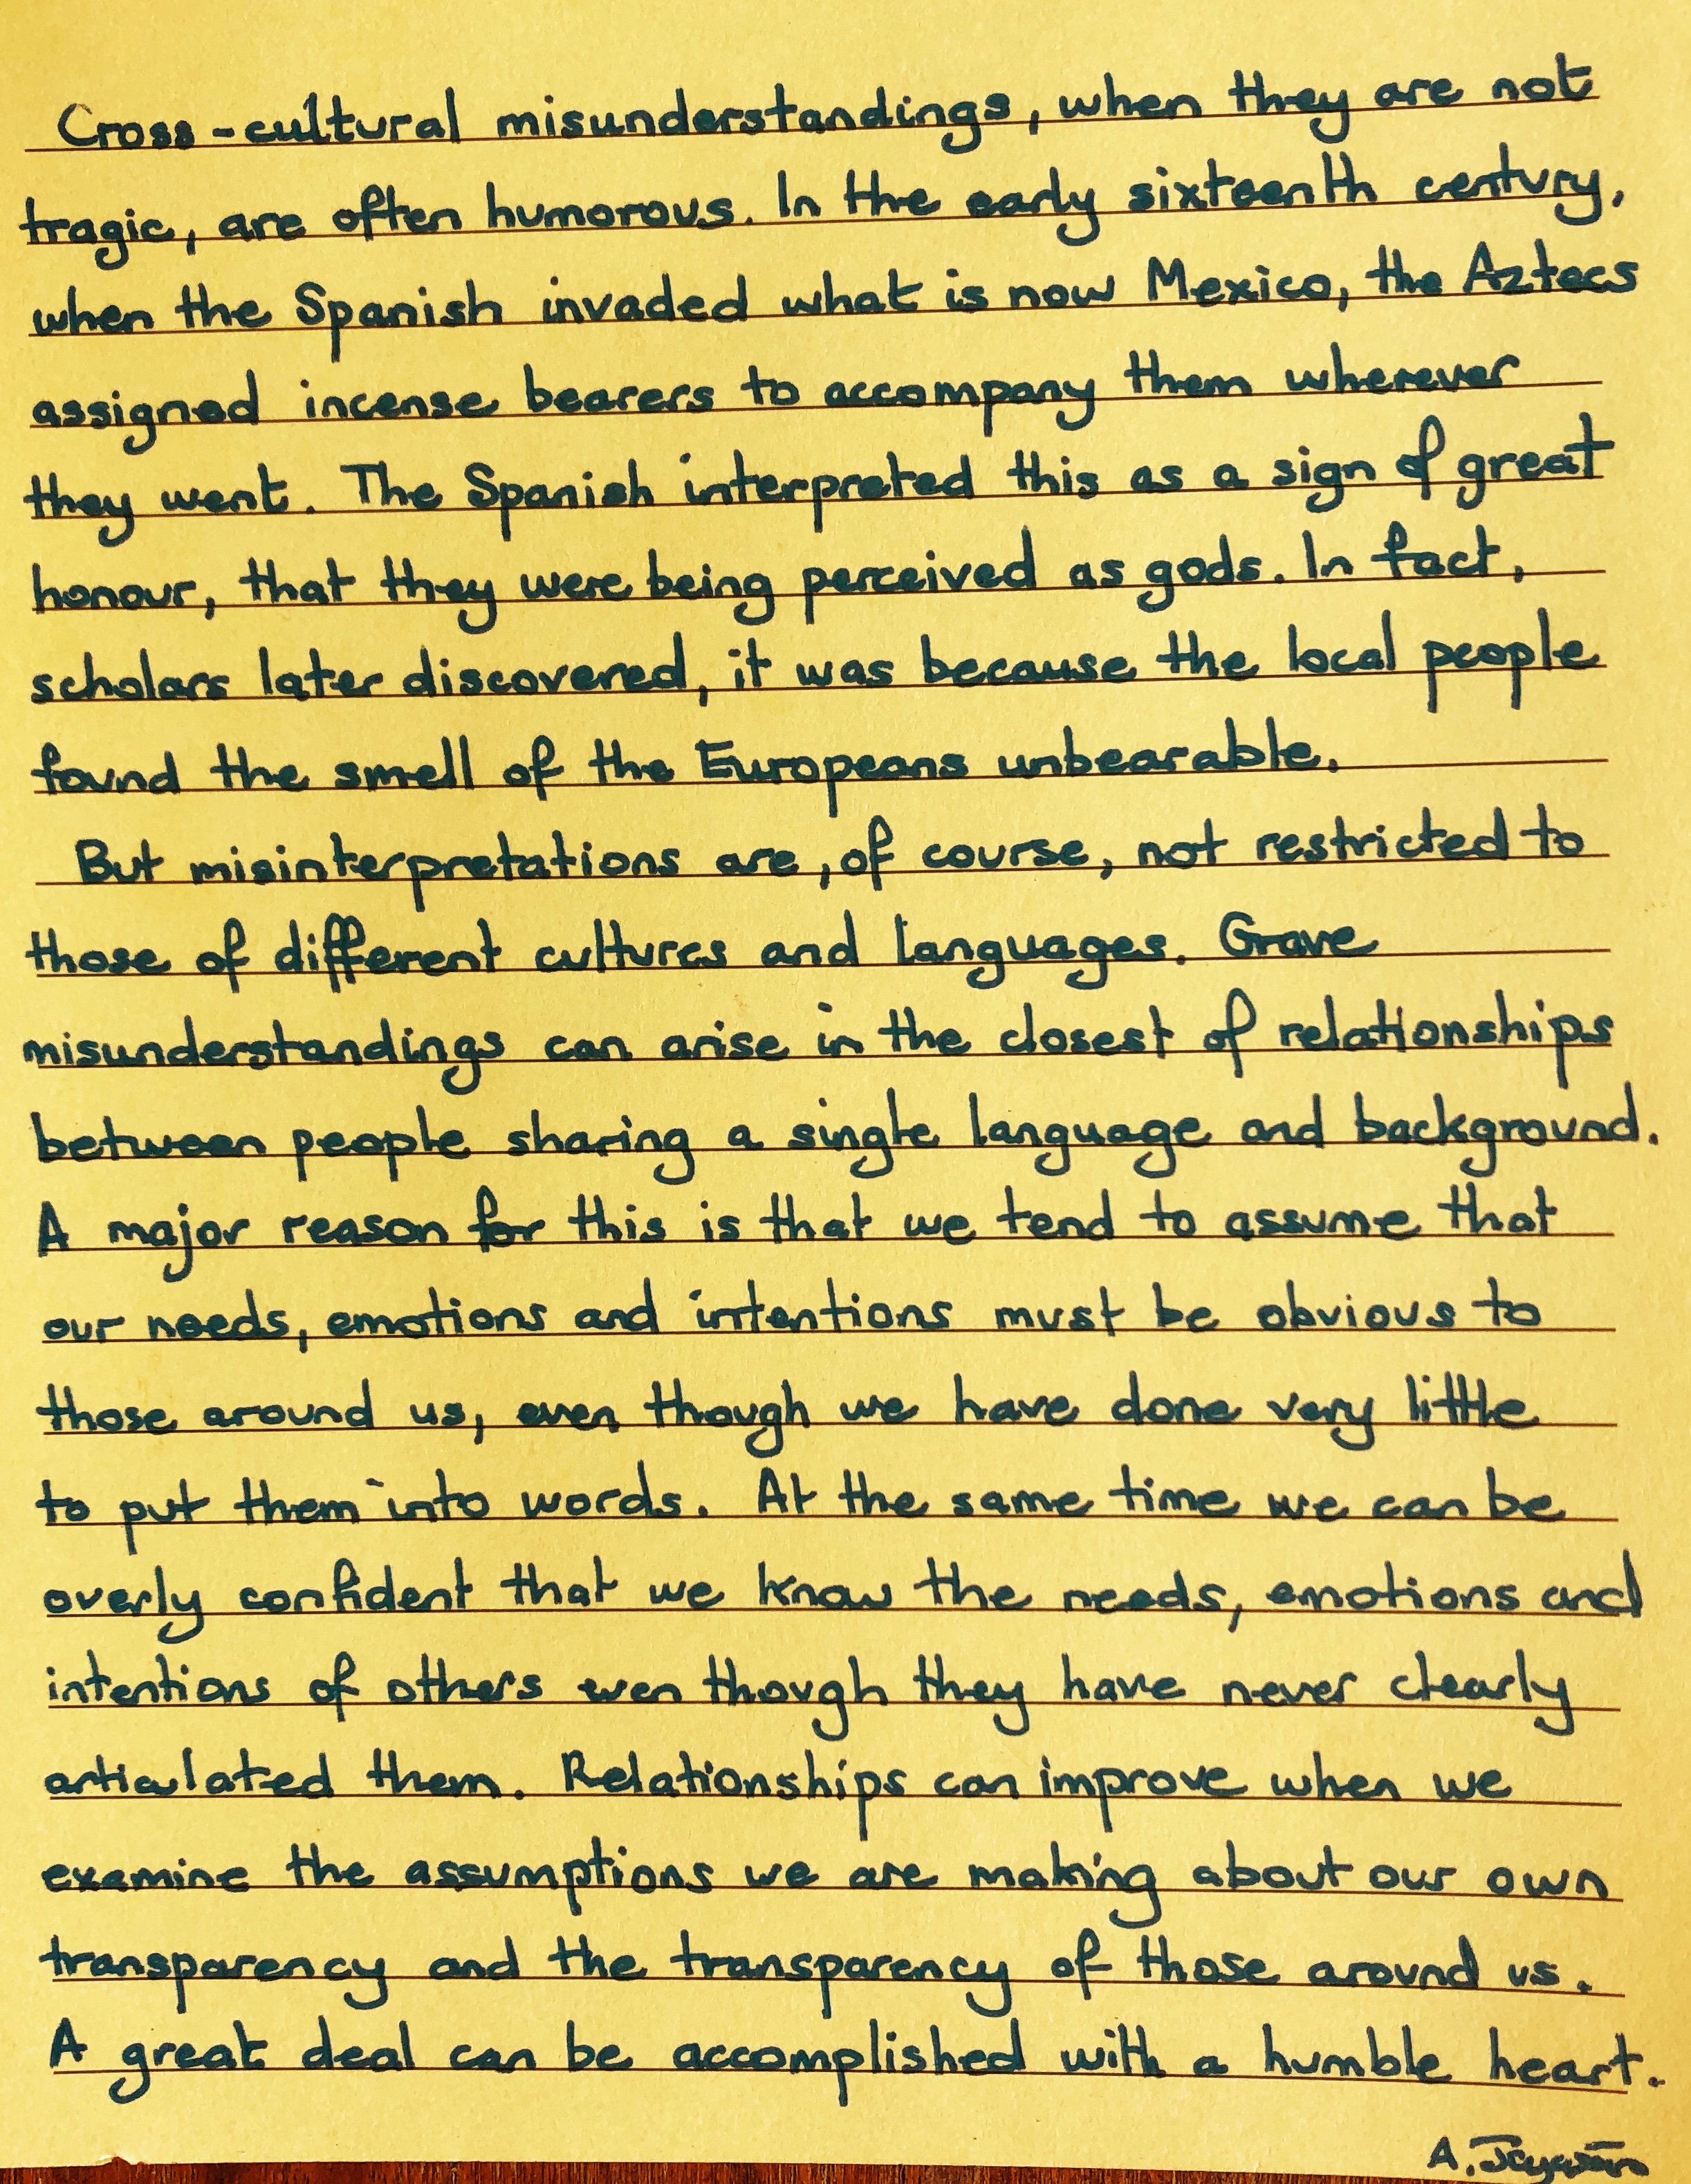 Cross-cultural misunderstandings, when they are not
tragic, are often humorous. In the early sixteenth century,
when the Spanish invaded what is now Mexico, the Aztecs
assigned incense bearers to accompany them wherever
they went. The Spanish interpreted this as a sign of great
honour, that they were being perceived as gods. In fact,
scholars later discovered, it was because the local people
found the smell of the Europeans unbearable.
But misinterpretations are, of course, not restricted to
those of different cultures and languages. Grave
misunderstandings can arise in the closest of relationships
between people sharing a single language and background.
A major reason for this is that we tend to assume that
our needs, emotions and intentions must be obvious to
those around us, even though we have done very little
to put them into words. At the same time we can be
overly confident that we know the needs, emotions and
intentions of others even though they have never clearly
articulated them. Relationships can improve when we
examine the assumptions we are making about our own
transparency and the transparency of those around us.
A great deal can be accomplished with a humble heart.
A.